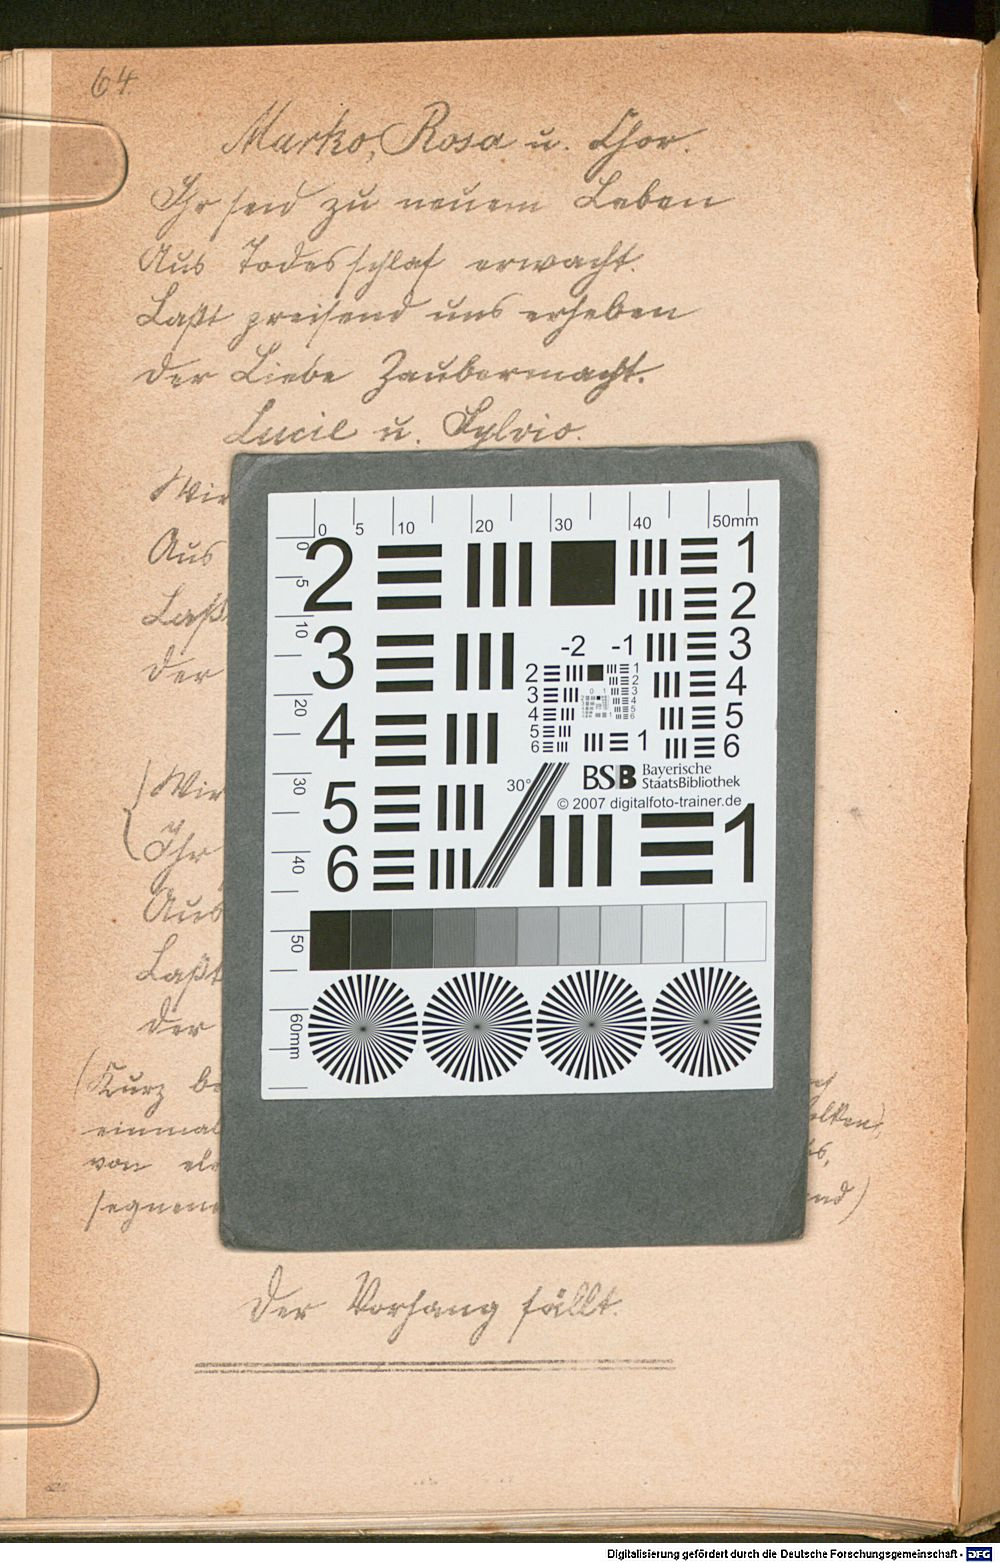 64.
Marko, Rosa u. Chor.
Ihr seid zu neuem Leben
Aus Todesschlaf erwacht.
Laßt preisend uns erheben
der Liebe Zaubermacht.
Lucil u. Sylvio.
Wir
Aus
Laßt
der
(Wir
Ihr
Aus
Laßt
der
(Kurz be
einmal
von ele
segnend
olken,
end)
0 5 10 20 30 40 50mm
0 5 10 20 30 40 50 60mm
2 1
2
3 -2 -1 3
4 4
5
6
5
6
2 1
3 2
4 3
5 4
6 5
6
0 1
1
30°
BSB Bayerische
StaatsBibliothek
© 2007 digitalfoto-trainer.de
1
Der Vorhang fällt.
Digitalisierung gefördert durch die Deutsche Forschungsgemeinschaft - DFG